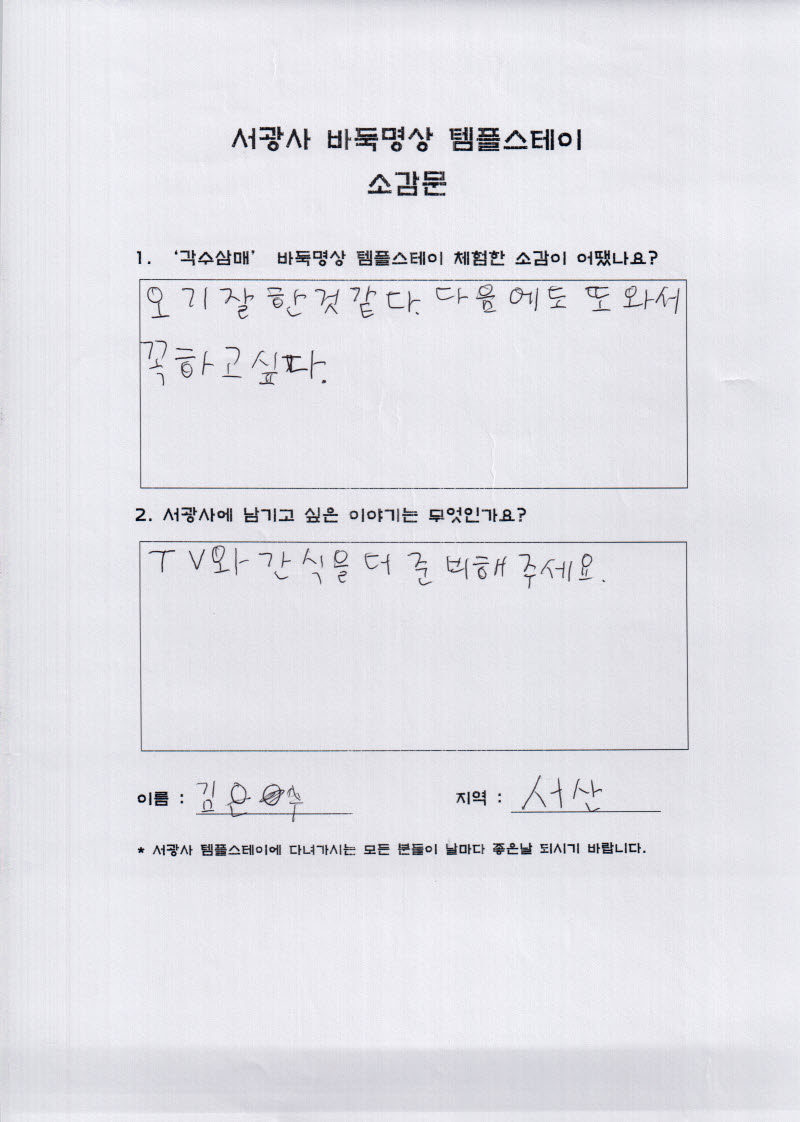 서광사 바둑명상 템플스테이
소감문
1. '각수삼매' 바둑명상 템플스테이 체험한 소감이 어땠나요?
오기잘한것같다. 다음에도 또 와서
꼭하고싶다.
2. 서광사에 남기고 싶은 이야기는 무엇인가요?
TV와 간식을 더 준비해 주세요.
이름 : 김은수 지역 : 서산
* 서광사 템플스테이에 다녀가시는 모든 분들이 날마다 좋은날 되시기 바랍니다.